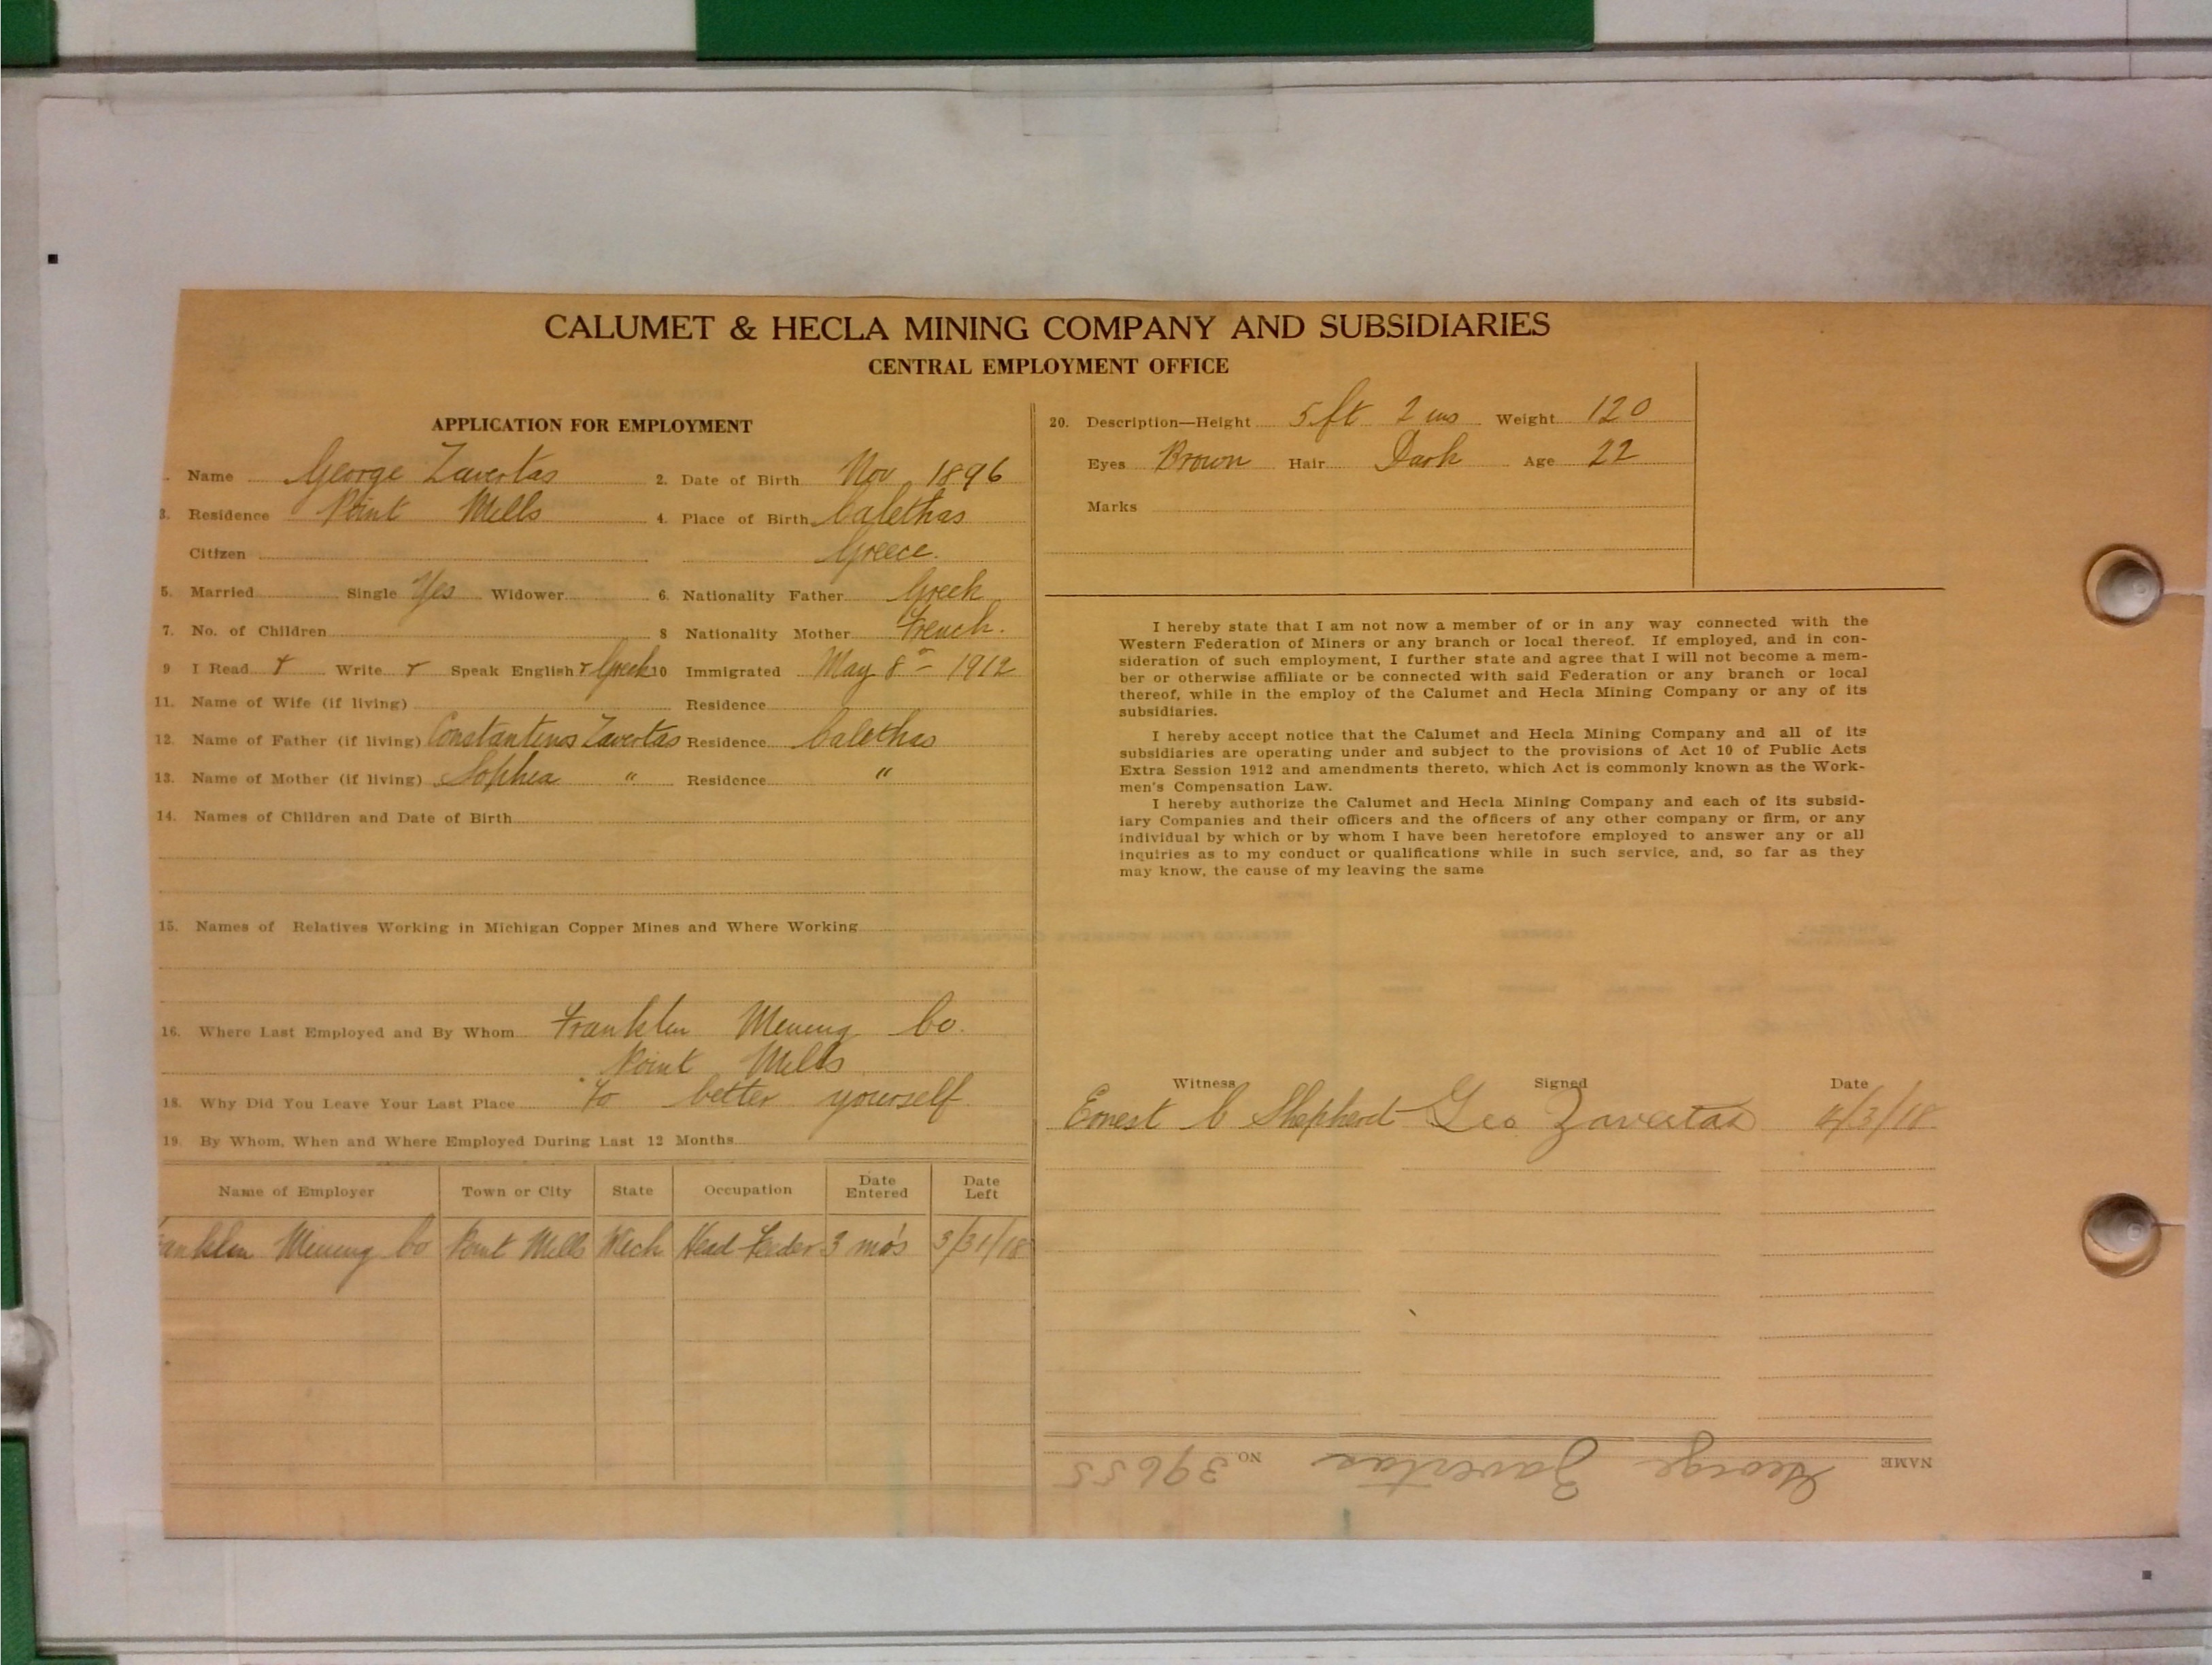 CALUMET & HECLA MINING COMPANY AND SUBSIDIARIES
CENTRAL EMPLOYMENT OFFICE
APPLICATION FOR EMPLOYMENT
Name George Zavertas 2. Date of Birth Nov 1896
3. Residence Point Mills 4. Place of Birth Calethas
Citizen Greece.
5. Married Single Yes Widower 6. Nationality Father Greek
7. No. of Children 8 Nationality Mother French.
9 I Read + Write + Speak English + Greek 10 Immigrated May 8th 1912
11. Name of Wife (if living) Residence
12. Name of Father (if living) Constantinos Zavertas Residence Calethas
13. Name of Mother (if living) Sophia " Residence "
14. Names of Children and Date of Birth
15. Names of Relatives Working in Michigan Copper Mines and Where Working
16. Where Last Employed and By Whom Franklin Mining Co.
Point Mills
18. Why Did You Leave Your Last Place To better yourself
19. By Whom, When and Where Employed During Last 12 Months
Name of Employer Town or City State Occupation Date Entered Date Left
anklin Mining Co Point Mills Mich Head Feeder 3 mo's 3/31/18
20. Description—Height 5 ft 2 ins Weight 120
Eyes Brown Hair Dark Age 22
Marks
I hereby state that I am not now a member of or in any way connected with the
Western Federation of Miners or any branch or local thereof. If employed, and in con-
sideration of such employment, I further state and agree that I will not become a mem-
ber or otherwise affiliate or be connected with said Federation or any branch or local
thereof, while in the employ of the Calumet and Hecla Mining Company or any of its
subsidiaries.
I hereby accept notice that the Calumet and Hecla Mining Company and all of its
subsidiaries are operating under and subject to the provisions of Act 10 of Public Acts
Extra Session 1912 and amendments thereto, which Act is commonly known as the Work-
men's Compensation Law.
I hereby authorize the Calumet and Hecla Mining Company and each of its subsid-
iary Companies and their officers and the officers of any other company or firm, or any
individual by which or by whom I have been heretofore employed to answer any or all
inquiries as to my conduct or qualifications while in such service, and, so far as they
may know, the cause of my leaving the same
Witness Signed Date
Ernest C Shepherd Geo Zavertas 4/3/18
NAME George Zavertas NO. 39655